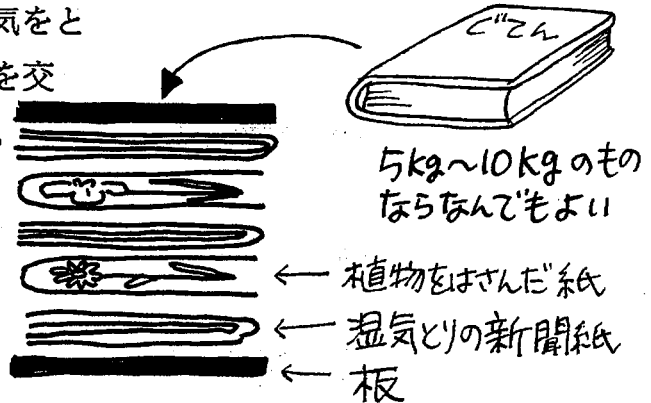 気をと
を交
じてん
5kg〜10kgのもの
ならなんでもよい
植物をはさんだ紙
湿気とりの新聞紙
板